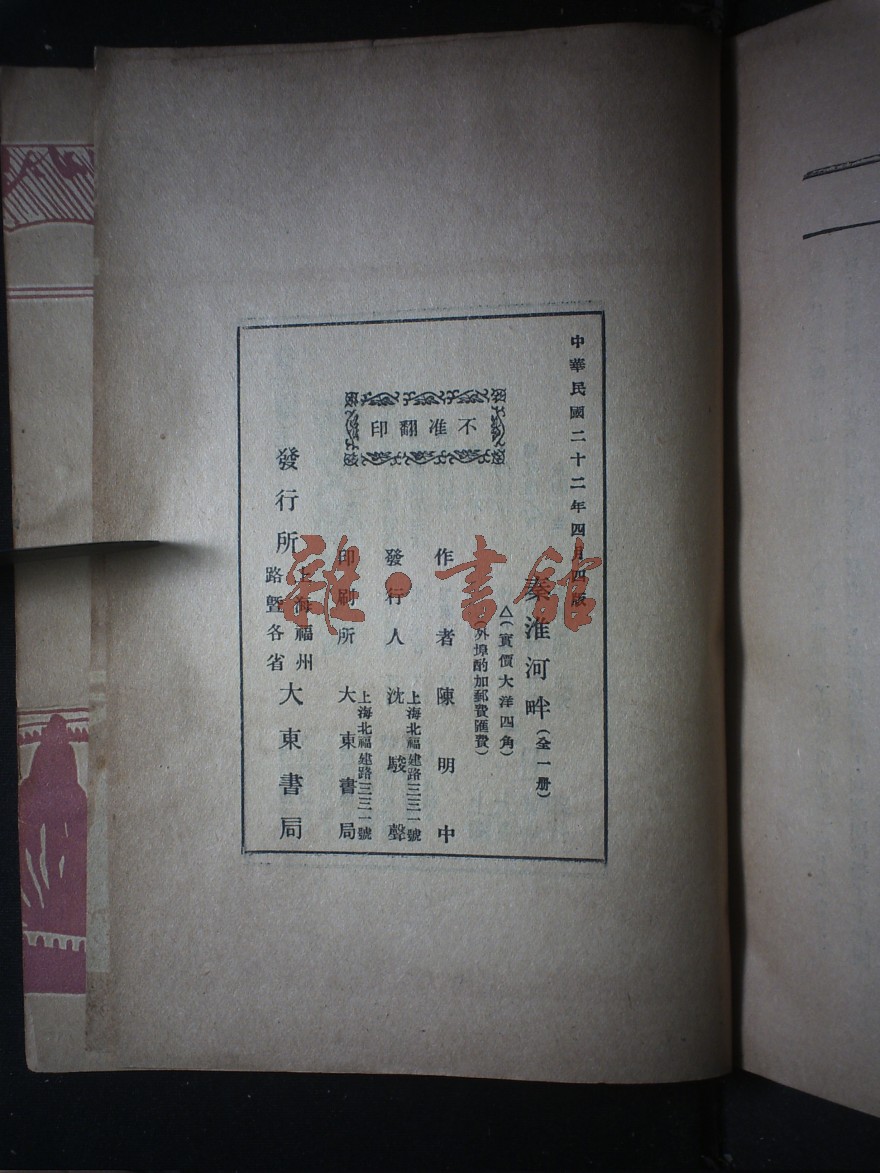 中華民國二十二年四月四版
秦淮河畔(全一册)
△(實價大洋四角)
(外埠酌加郵費匯費)
不准翻印
作者 陳明中
上海北福建路三三一號
發行人 沈駿聲
上海北福建路三三一號
印刷所 大東書局
發行所 上海福州路曁各省 大東書局
雜·書館